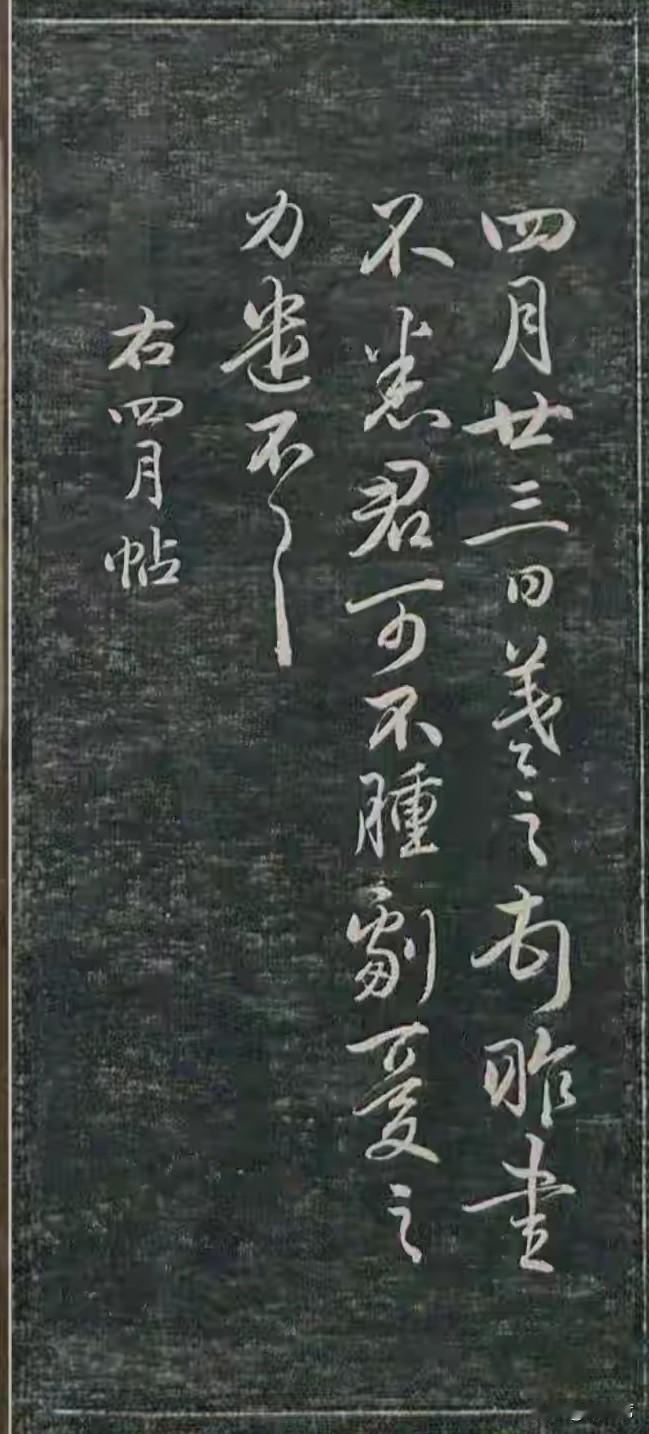 四月廿三日羲之昨書
不悉君可不腫劇憂之
力遣不
右四月帖